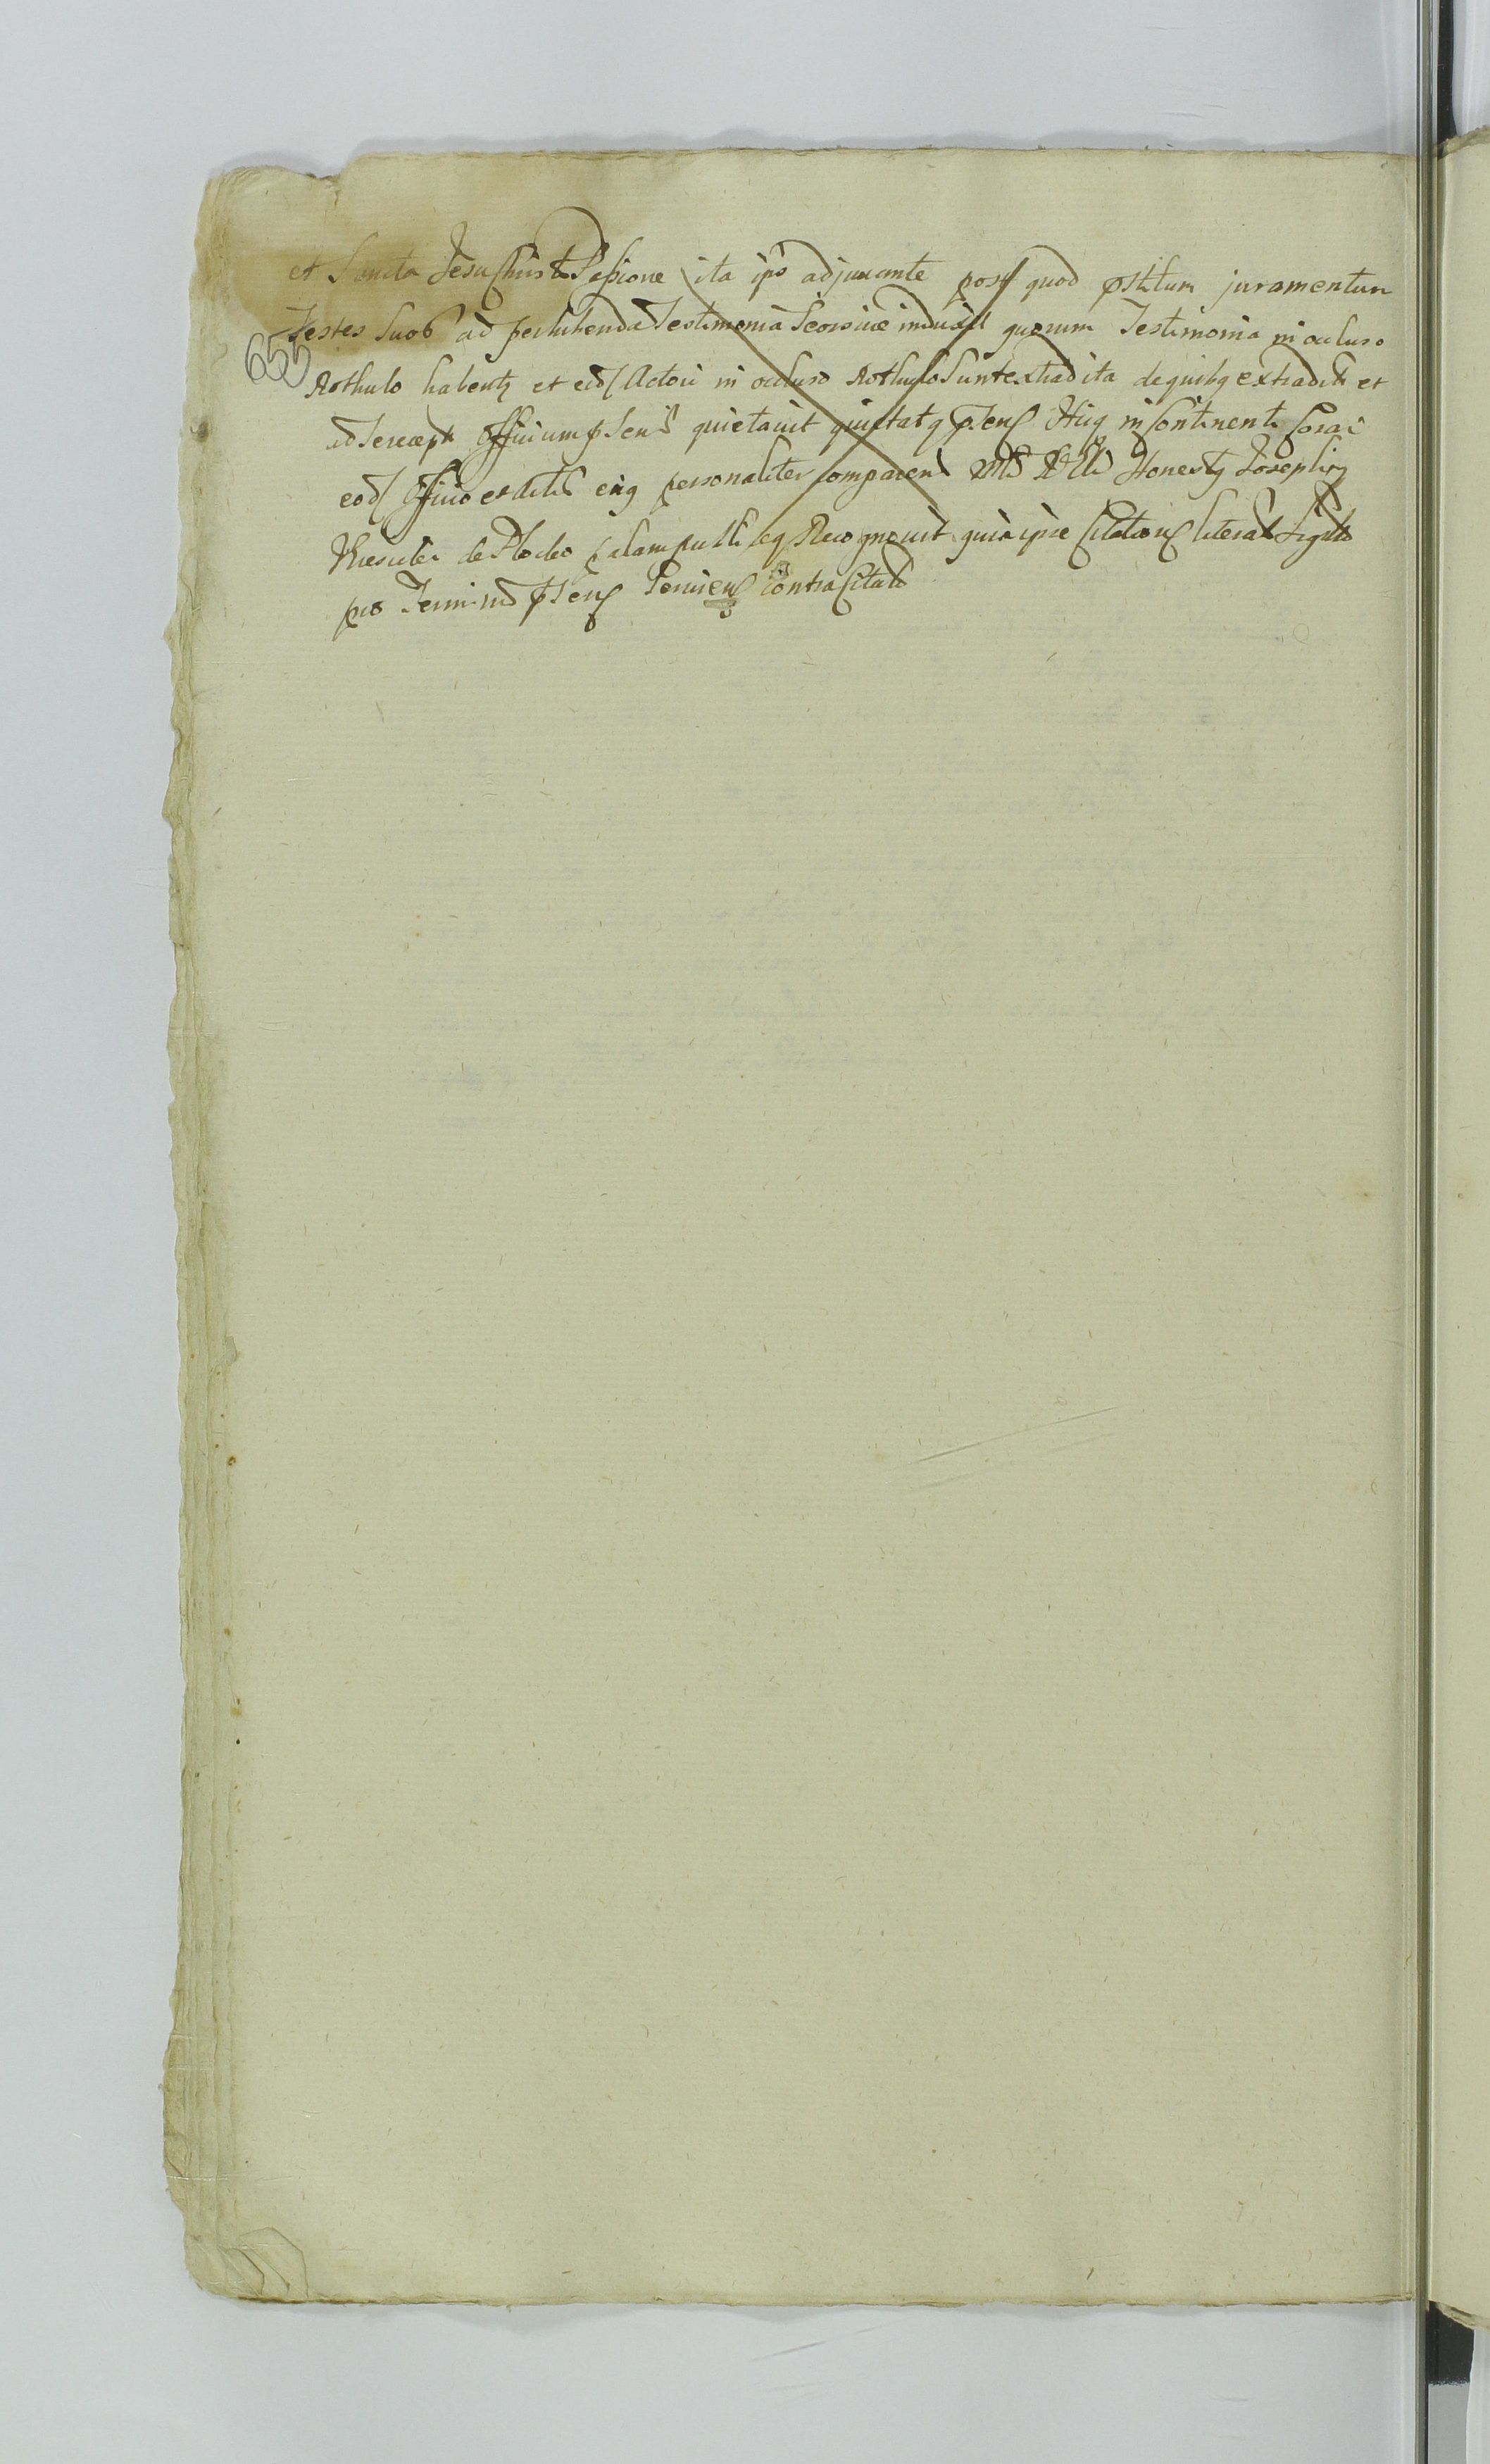 et Sancta Jesu Christi Passione ita ipso adjuvante post quod pstitum juramentum
Testes Suos ad perhibenda Testimonia Seorsive induxit quorum Testimonia in ocluso
655
Rothulo habentq et eid Actori in ocluso Rothulo Sunt extradita de quibq extraditis et
ad Se recept Officium psens quietavit quietatq psenq Huiq in Continenti Coraì
eod Officio et Actis eiq personaliter comparens Honestq Josephq
de Plocko palam publi Recognovit quia ipse Citationq literal Sigillo
pro Termino psenq contra Citato